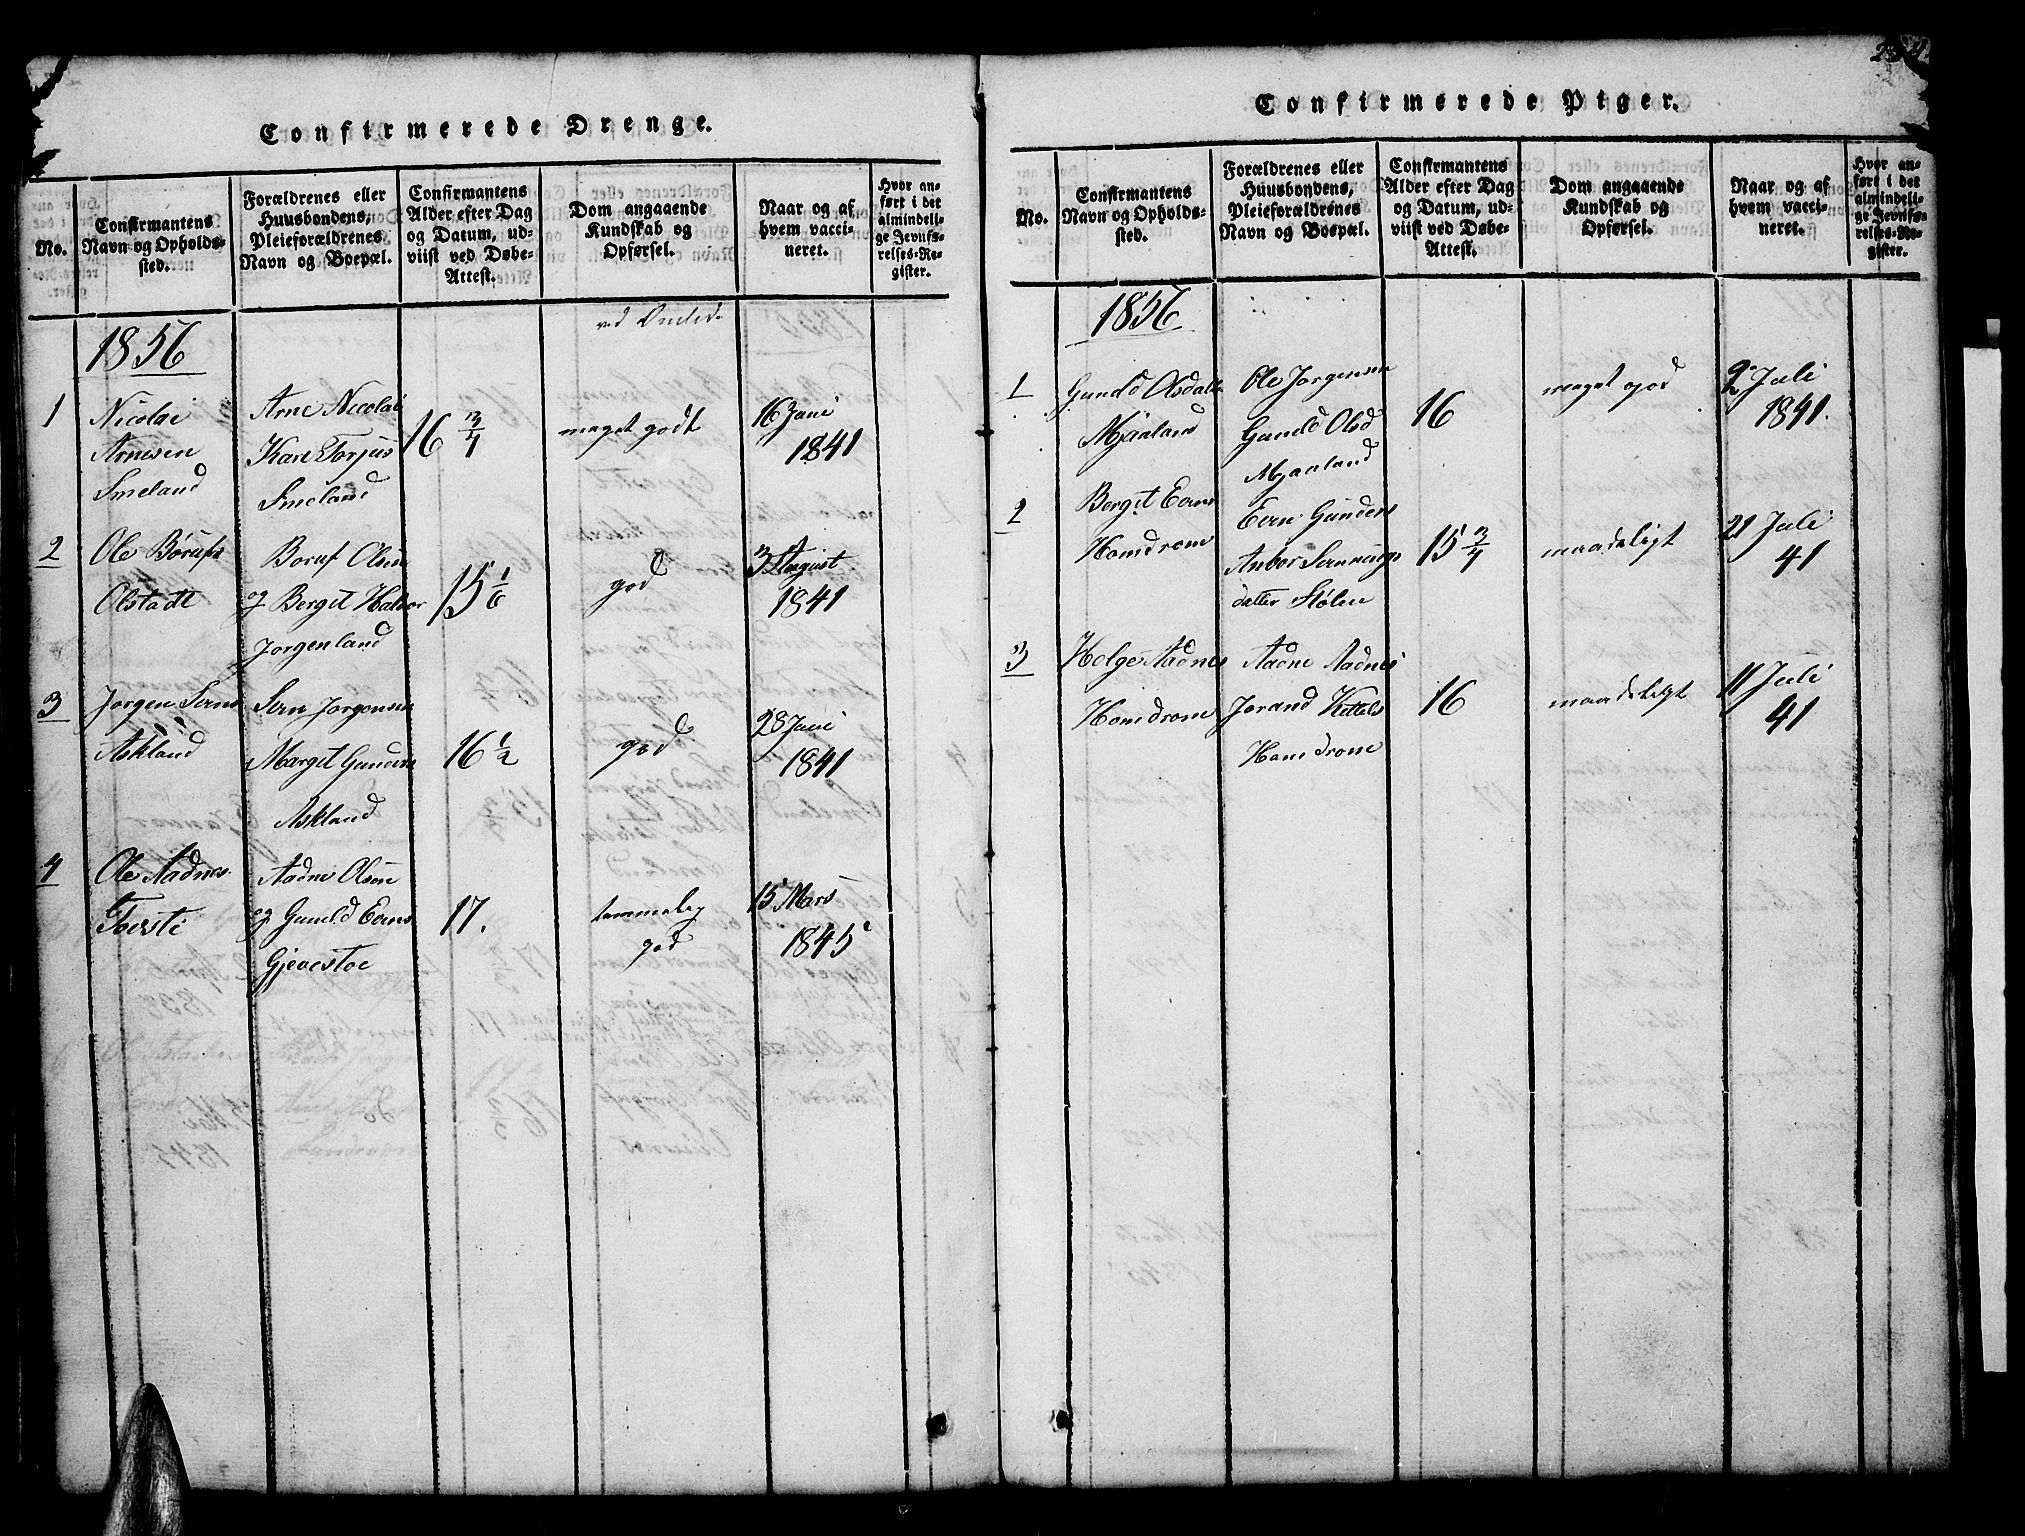 Confirmerede Drenge.
No.
Confirmantens
Navn og Opholds-
sted.
Forældrenes eller
Huusbondens,
Pleieforældrenes
Navn og Boepæl.
Confirmantens
Alder efter Dag
og Datum, ud-
viist ved Døbe-
Attest.
Dom angaaende
Kundskab og
Opførsel.
Naar og af
hvem vacci-
neret.
Hvor an-
ført i det
almindeli-
ge Jevnfø-
relses-Re-
gister.
1856
1
Nicolai
Arnesen
Smeland
Arne Nicolai
Kari Torjus
Smeland
16 3/4
meget godt
16 Juni
1841
2
Ole Børufs
Olstadt
Boruf Olsen
og Bergit Halvor
Jorgenland
15 1/6
god
3 August
1841
3
Jorgen Serns
Askland
Sern Jorgensen
Margit Gunders
Askland
16 1/2
god
28 Juni
1841
4
Ole Aadnes
Aadne Olsen
og Gunild Evens
Gjevestoe
17.
temmelig
god
15 Mars
1845
Confirmerede Piger.
No.
Confirmantens
Navn og Opholds-
sted.
Forældrenes eller
Huusbondens,
Pleieforældrenes
Navn og Boepæl.
Confirmantens
Alder efter Dag
og Datum, ud-
viist ved Døbe-
Attest.
Dom angaaende
Kundskab og
Opførsel.
Naar og af
hvem vacci-
neret.
Hvor an-
ført i det
almindeli-
ge Jevnfø-
relses-Re-
gister.
1856
1
Gunild Olsdatt
Mjaaland
Ole Jorgensen
Gunild Olsd
Mjaaland
16
meget god
2 Juli
1841.
2
Bergit Evens
Homdrom
Even Gunders
Anbor
datter Stølen
15 3/4
maadeligt
21 Juli
41
3
Helge Aadnes
Homdrom
Aadne Aadnes
Jorand Kittels
Homdrom
16
maadeligt
11 Juli
41